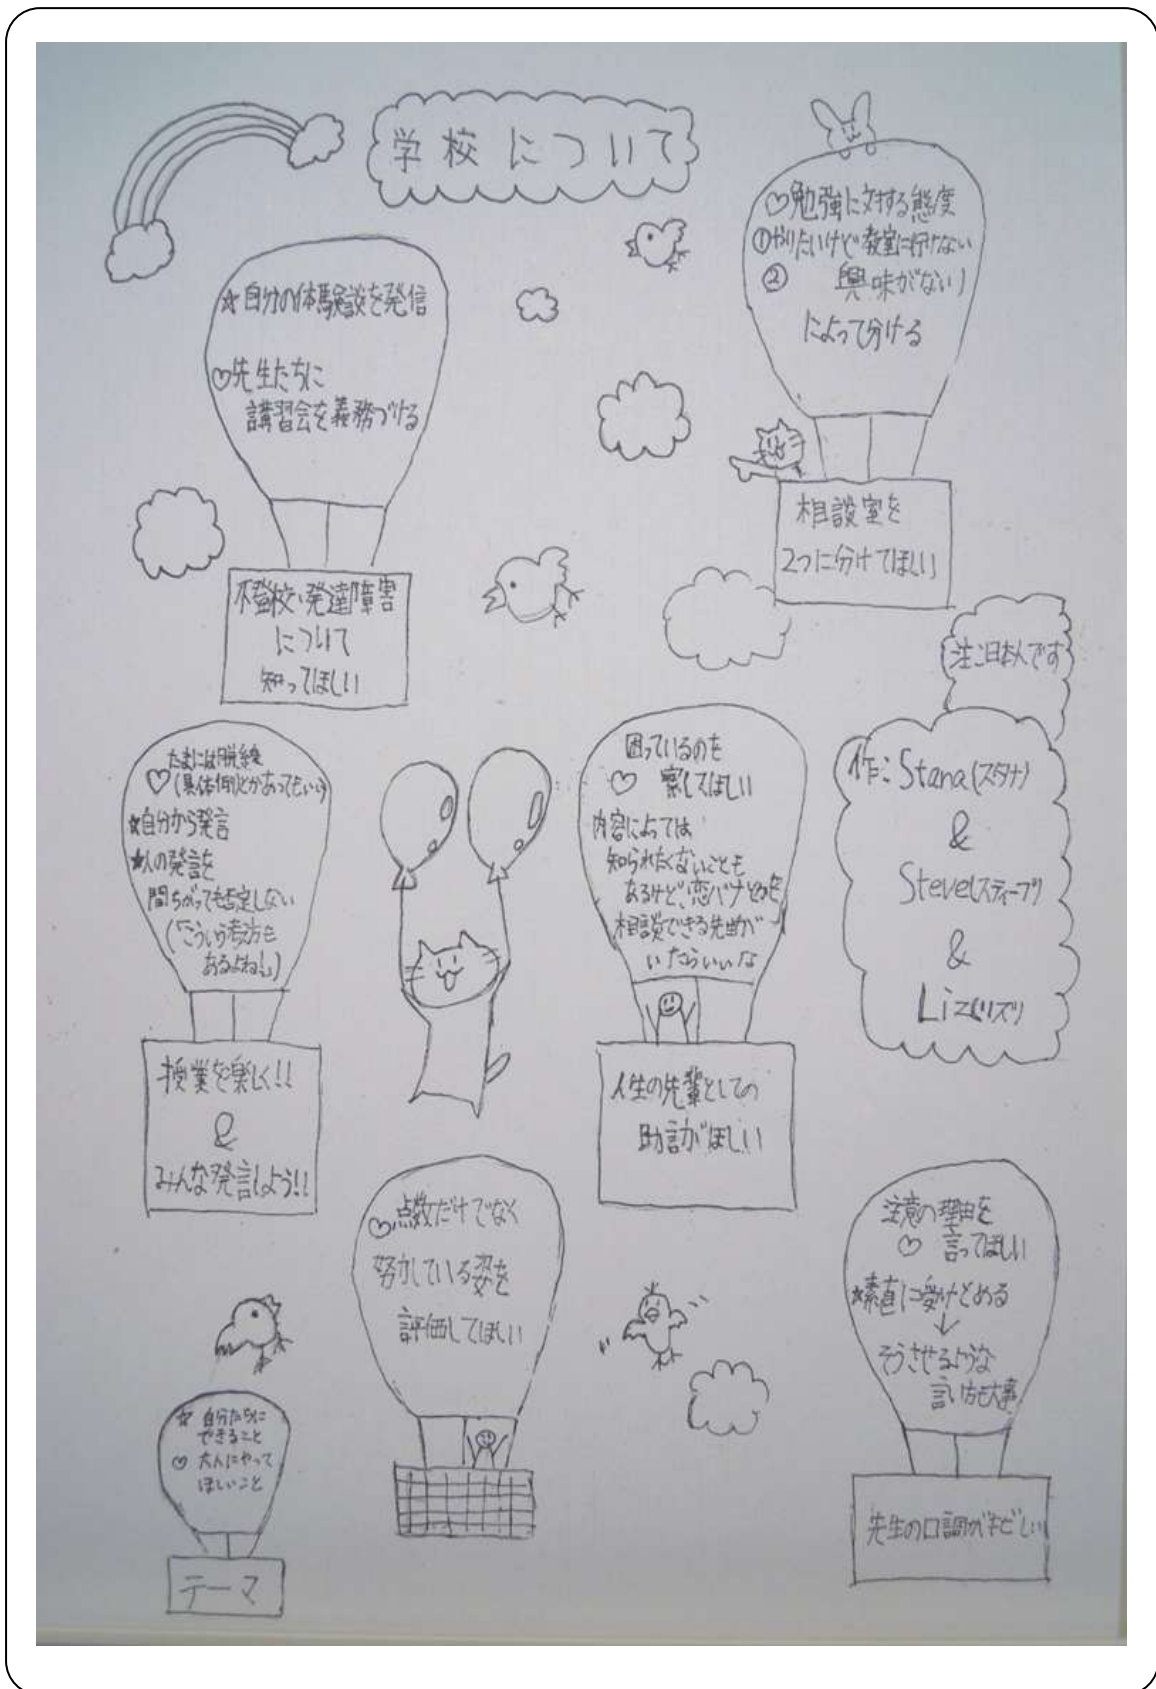 学校について
☆自分の体験談を発信
♡先生たちに
講習会を義務づける
不登校・発達障害
について
知ってほしい
♡勉強に対する態度
①やりたいけど教室に行けない
②興味がない)
によって分ける
相談室を
2つに分けてほしい
注:日本人です
作:Stana(スタナ)
&
Steve(スティーブ)
&
Liz(リズ)
たまには脱線
♡(具体例とかあってもいい)
☆自分から発言
☆人の発言を
間ちがっても否定しない
(「こういう考え方も
あるよね!」)
授業を楽しく!!
&
みんな発言しよう!!
困っているのを
♡察してほしい
内容によっては
知られたくないことも
あるけど、恋バナとかを
相談できる先生が
いたらいいな
人生の先輩としての
助言がほしい
♡点数だけでなく
努力している姿を
評価してほしい
注意の理由を
♡言ってほしい
☆素直に受けとめる
↓
そうさせるような
言い方も大事
先生の口調がキビしい
☆自分たちに
できること
♡大人にやって
ほしいこと
テーマ